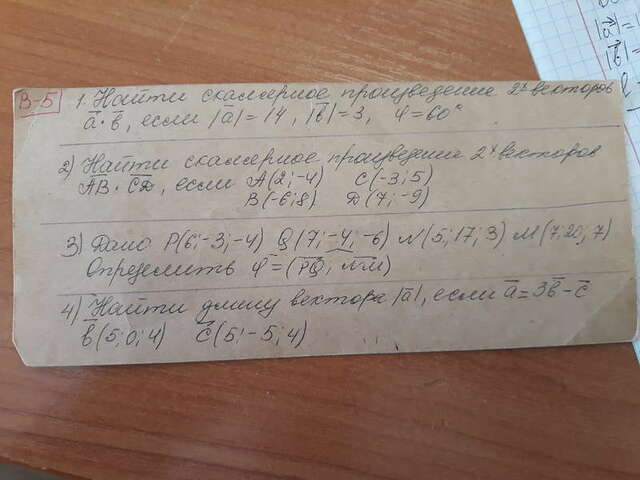 В-5
1. Найти скалярное произведение 2х векторов
a̅·b̅, если |a̅|=14, |b̅|=3, φ=60°
2) Найти скалярное произведение 2х векторов
AB·C̅D̅, если A(2;-4) C(-3;5)
B(-6;8) D(7;-9)
3) Дано P(6;-3;-4) Q(7;-4;-6) N(5;17;3) M(7;20;7)
Определить φ=(P̅Q̅; N̅M̅)
4) Найти длину вектора |a̅|, если a̅=3b̅-c̅
b̅(5;0;4) c̅(5;-5;4)